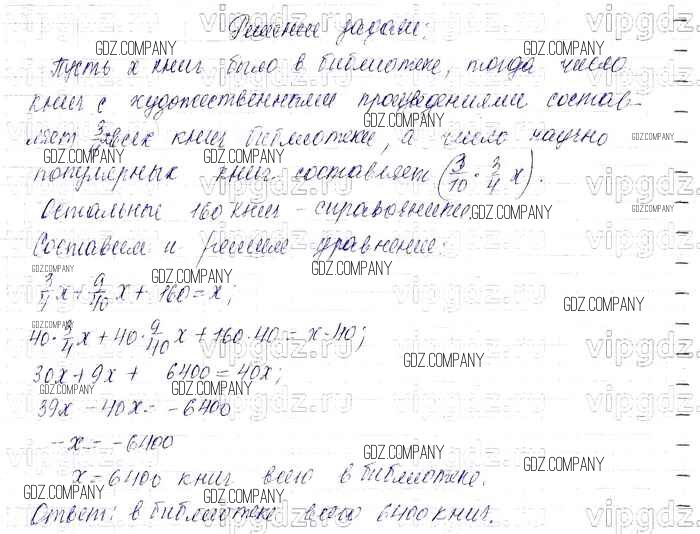 Решение задачи:
Пусть x книг было в библиотеке, тогда число
книг с художественными произведениями состав-
ляет 3/4 x всех книг библиотеки, а число научно
популярных книг составляет (3/10 · 3/4 x).
Остальные 160 книг - справочники.
Составим и решим уравнение:
3/4 x + 9/40 x + 160 = x;
40 · 3/4 x + 40 · 9/40 x + 160 · 40 = x · 40;
30x + 9x + 6400 = 40x;
39x - 40x = -6400
-x = -6400
x = 6400 книг всего в библиотеке.
Ответ: в библиотеке всего 6400 книг.
GDZ.COMPANY
vipgdz.ru